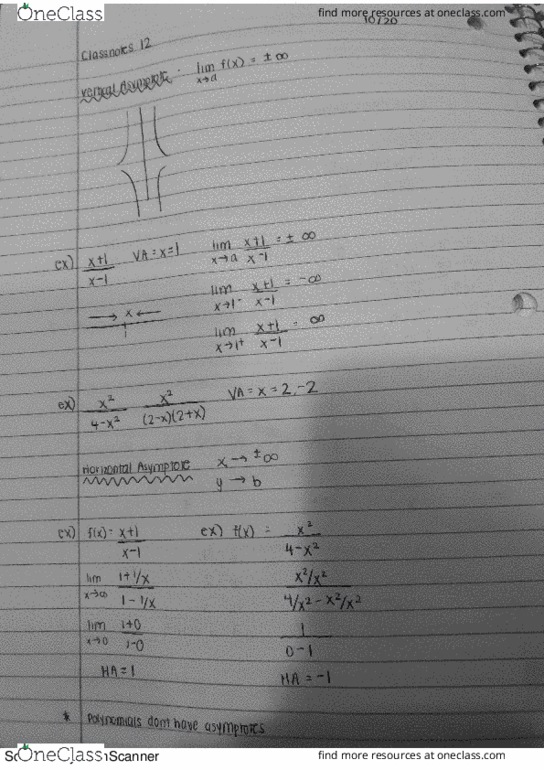 OneClass find more resources at oneclass.com
10/20
Classnotes 12
Vertical Asymptote: lim f(x) = ±∞
x→a
ex) x+1 VA = x = 1 lim x+1 = ± ∞
x-1 x→a x-1
lim x+1 = -∞
x→1⁻ x-1
→ x ←
1
lim x+1 = ∞
x→1⁺ x-1
ex) x² x² VA = x = 2, -2
4-x² (2-x)(2+x)
Horizontal Asymptote x → ±∞
y → b
ex) f(x) = x+1 ex) f(x) = x²
x-1 4-x²
lim 1+1/x x²/x²
x→∞ 1-1/x 4/x² - x²/x²
lim 1+0 1
x→0 1-0 0-1
HA = 1 HA = -1
* Polynomials dont have asymptotes
OneClass Scanner find more resources at oneclass.com